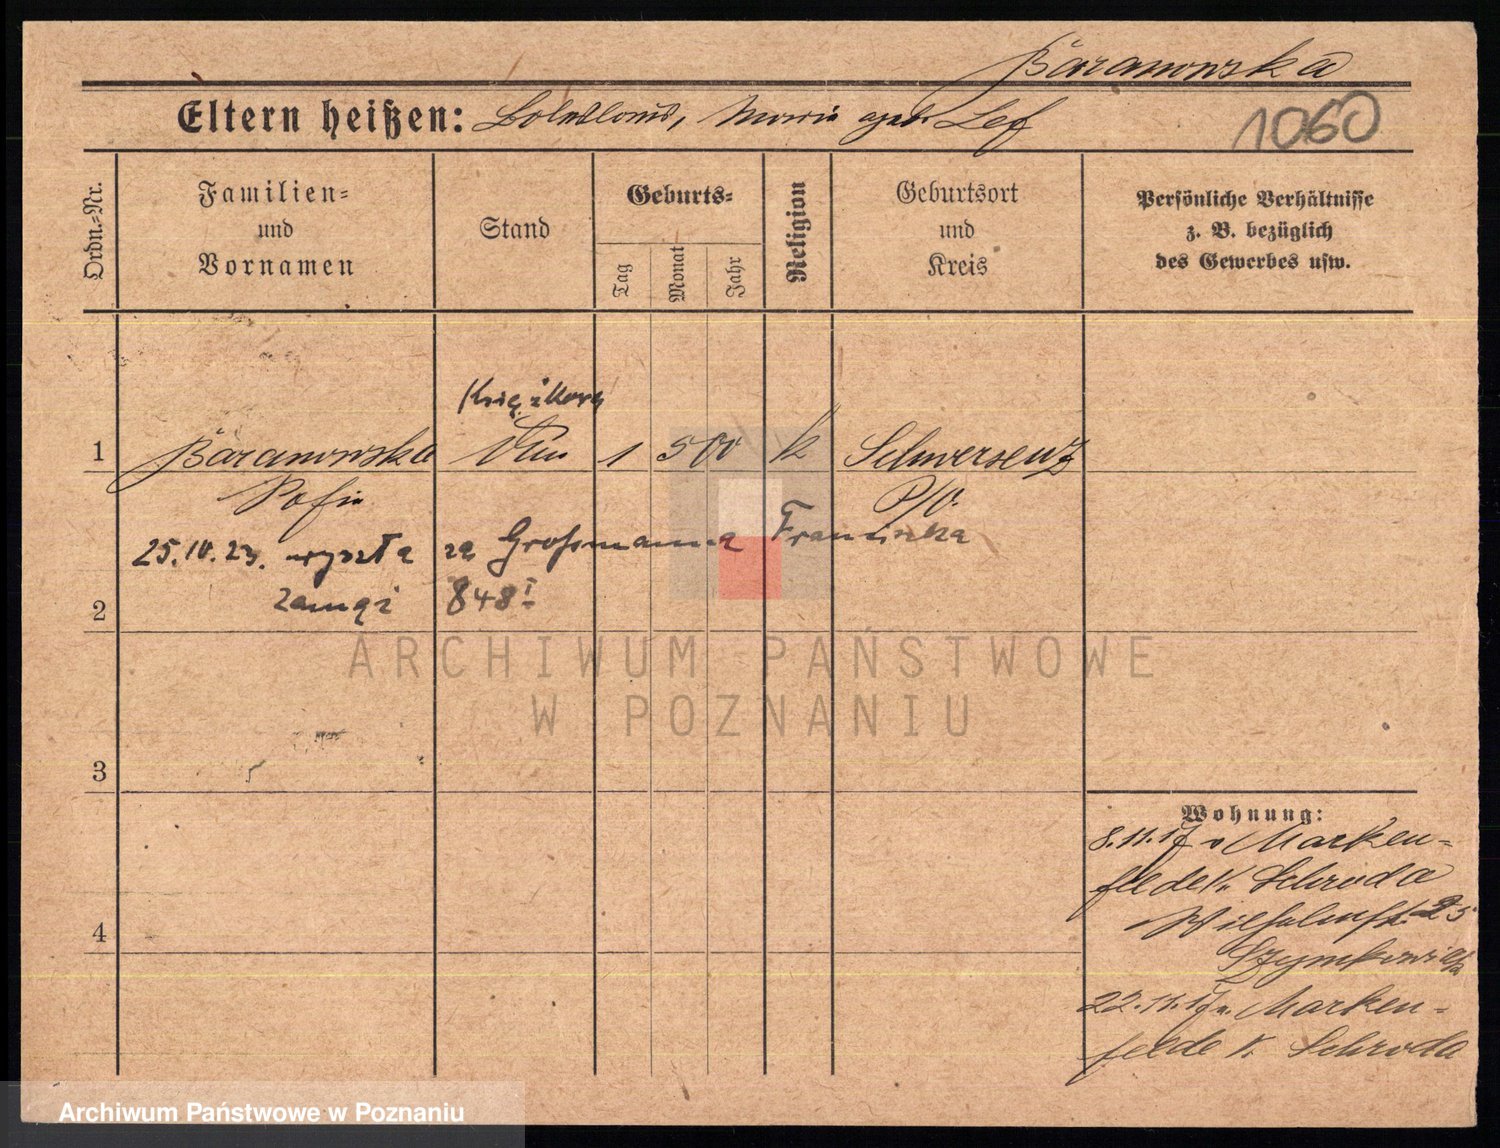 Baranowska
Eltern heißen: Boleslaus, Marie geb. Lef
1060
Ordn.-Nr.
Familien-
und
Vornamen
Stand
Geburts-
Tag
Monat
Jahr
Religion
Geburtsort
und
Kreis
Persönliche Verhältnisse
z. B. bezüglich
des Gewerbes usw.
Księżkową
1 Baranowska 1 5 00 k Schwersenz
Sofie P/O.
25.10.23. wyszła za Grossmanna Franciszka
zamąż 848 I
2
3
4
Wohnung:
8.11.17 v Marken-
felde K. Schroda
Wilhelmst. 25
22.11.17 n. Marken-
felde K. Schroda
ARCHIWUM PAŃSTWOWE
W POZNANIU
Archiwum Państwowe w Poznaniu